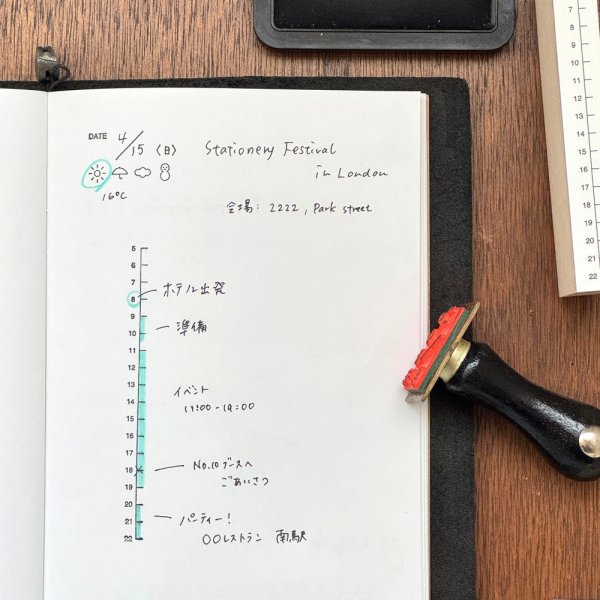 DATE 4/15 〈日〉 Stationery Festival
in London
16°C
会場: 2222, Park street
5
6
7
ホテル出発
8
9
準備
10
11
12
13
イベント
14
11:00-19:00
15
16
17
18
No.10 ブースへ
ごあいさつ
19
20
21
パーティー!
22
〇〇レストラン 南駅
7
8
9
10
11
12
13
14
15
16
17
18
19
20
21
22